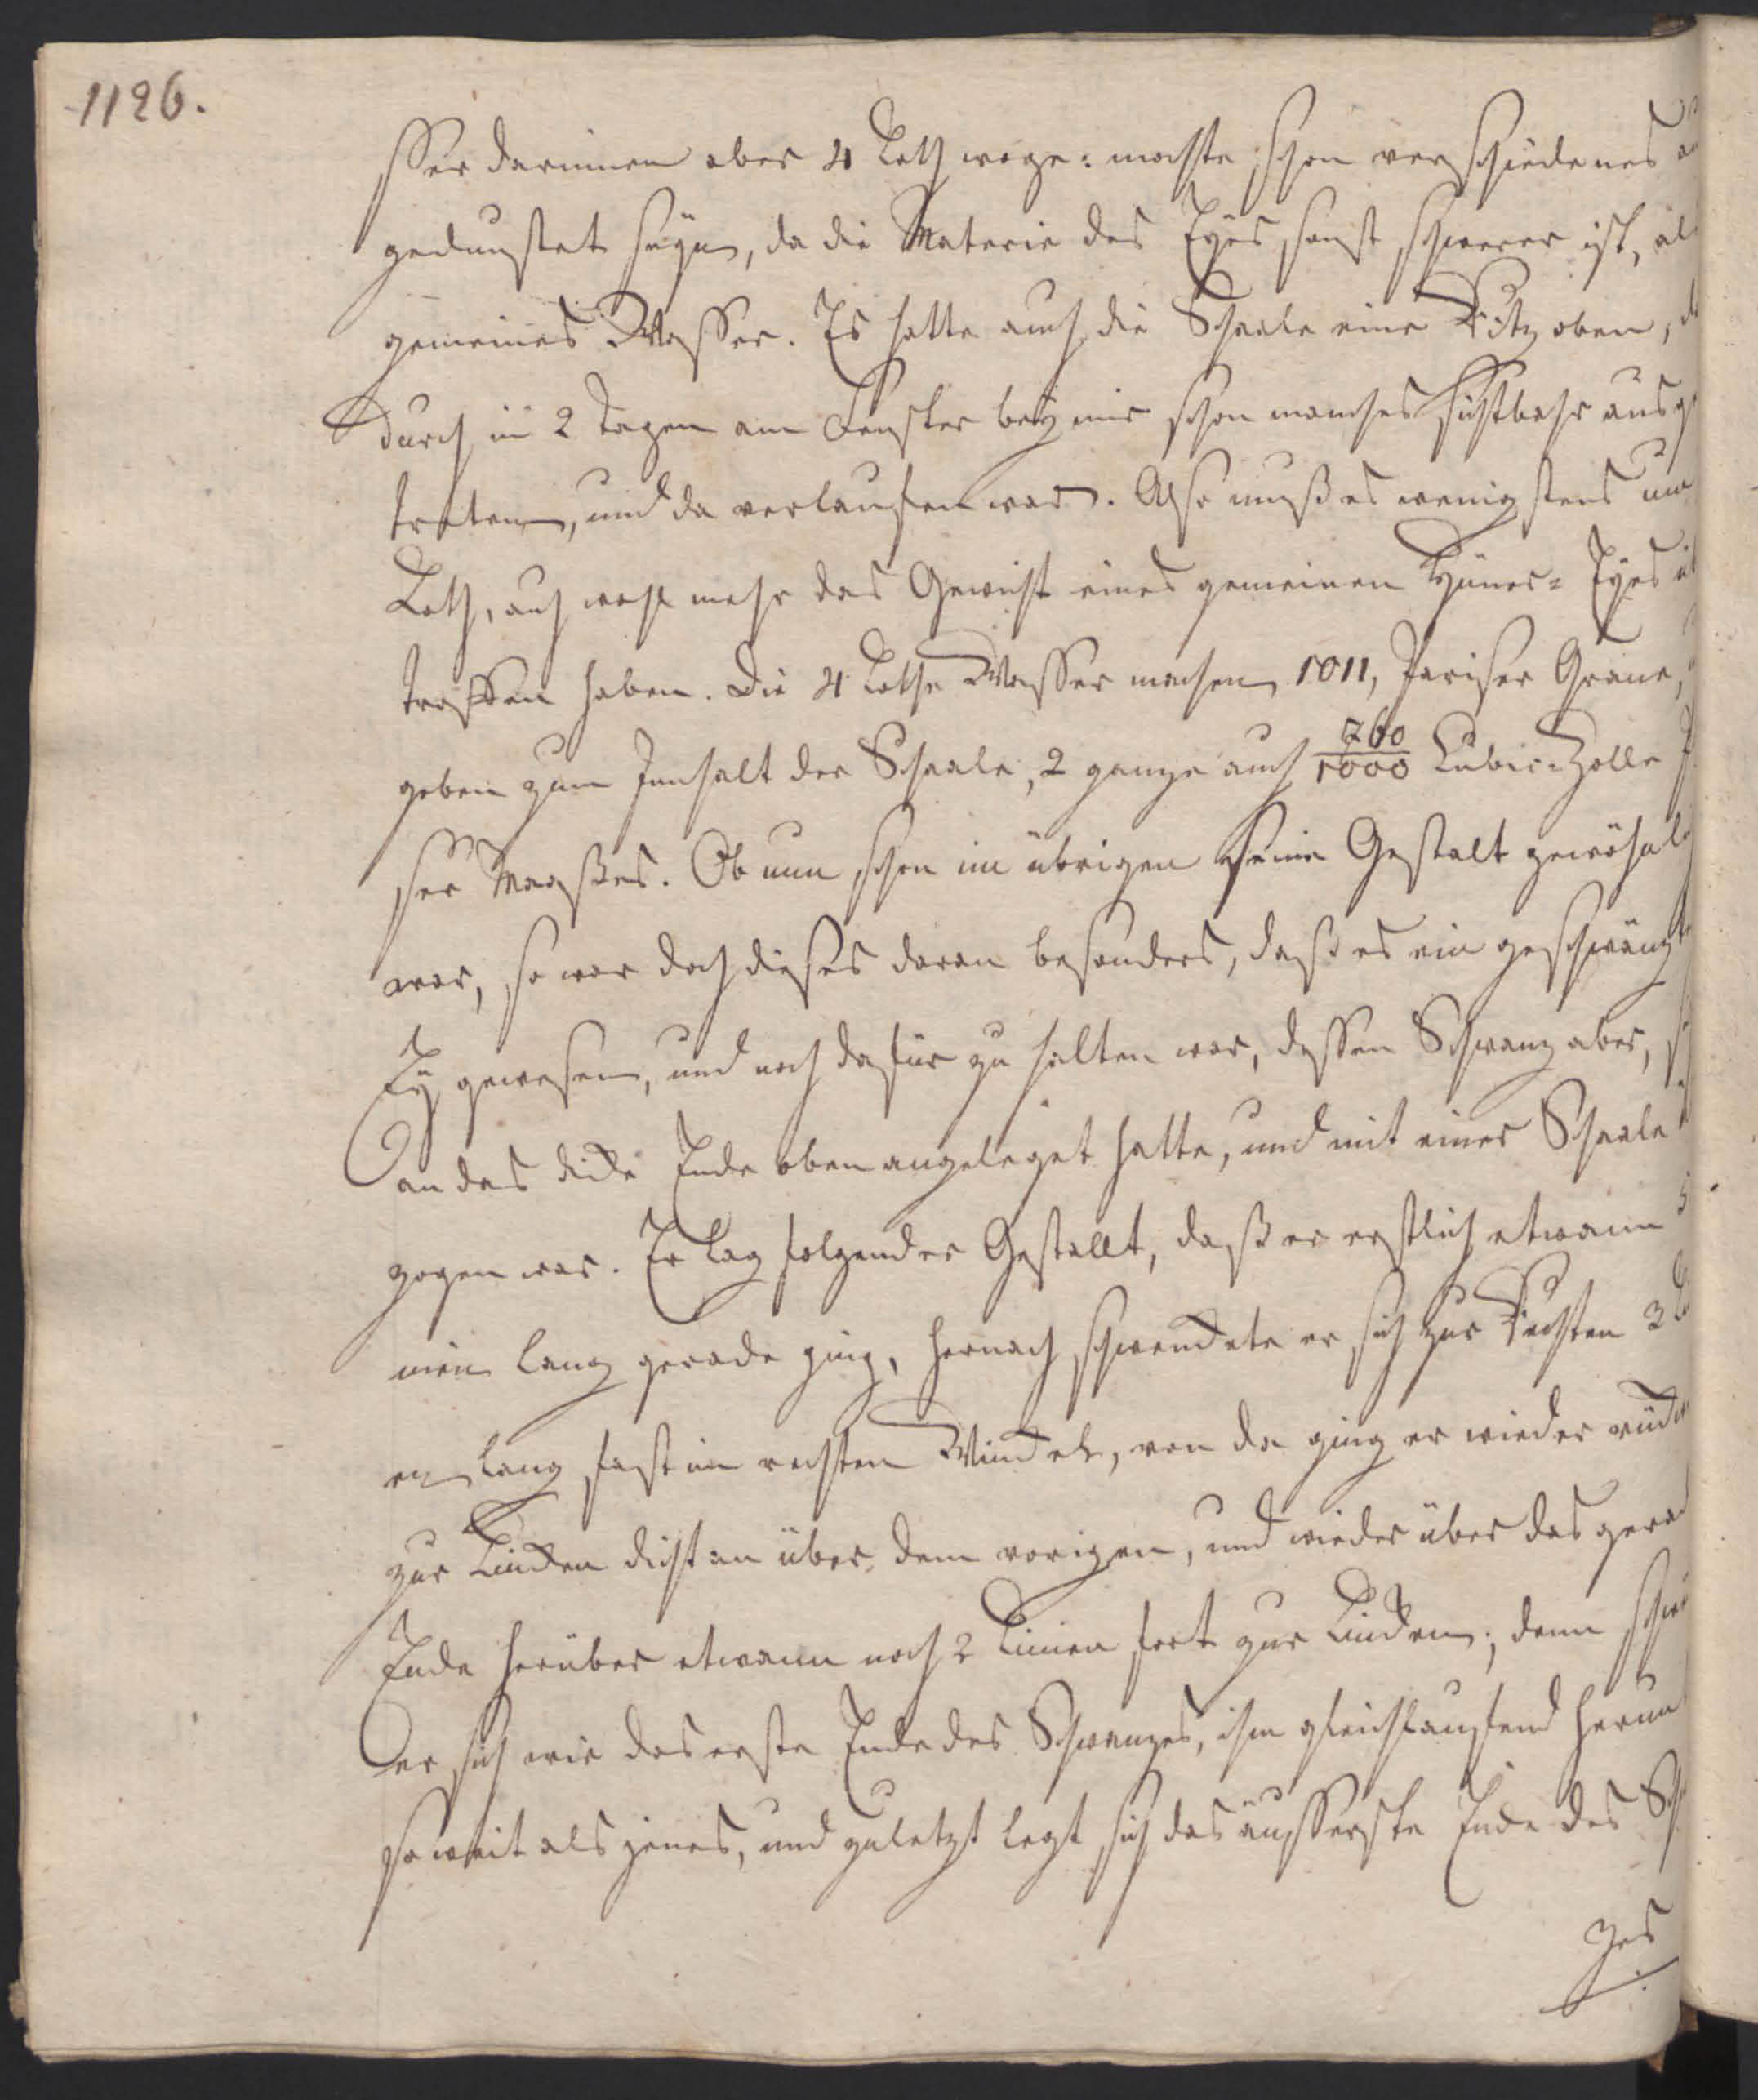 1126.
sser darinnen aber 4 Loth woge: mochte schon verschiedenes
gedunstet seyn, da die Materie des Eyes sonst schwerer ist, als
gemeines Wasser. Es hatte auch die Schaale eine Ritz oben, da
durch in 2 Tagen am Fenster bey mir schon manches sichtbahr ausge
treten, und da verlaufen war. Also muß es wenigstens um
Loth, auch wohl mehr das Gewicht eines gemeinen Hüner- Eyes
troffen haben. Die 4 Lothe Wasser machen 1011, Pariser Grane,
geben zum Innhalt der Schaale, 2 ganze auch 760/1000 Cubic-Zolle
ser Maaßes. Ob nun schon im übrigen seine Gestalt gewöhnl
war, so war doch dieses daran besonders, daß es ein geschwänzt
Ey gewesen, und noch dafür zu halten war, dessen Schwanz aber,
an das dicke Ende oben angeleget hatte, und mit einer Schaale
zogen war. Er lag folgender Gestallt, daß er erstlich etwann
nien lang gerade ging, hernach schwenckte er sich zur Rechten 3
en lang fast im rechten Winckel, von da ging er wieder rück
zur Lincken dicht an über dem vorigen, und wieder über das gerad
Ende herüber etwann noch 2 Linien fort zur Lincken; denn
er sich wie das erste Ende des Schwanzes, ihm gleichlaufend herun
so weit als jenes, und zuletzt legt sich das äusserste Ende des Sch
zes